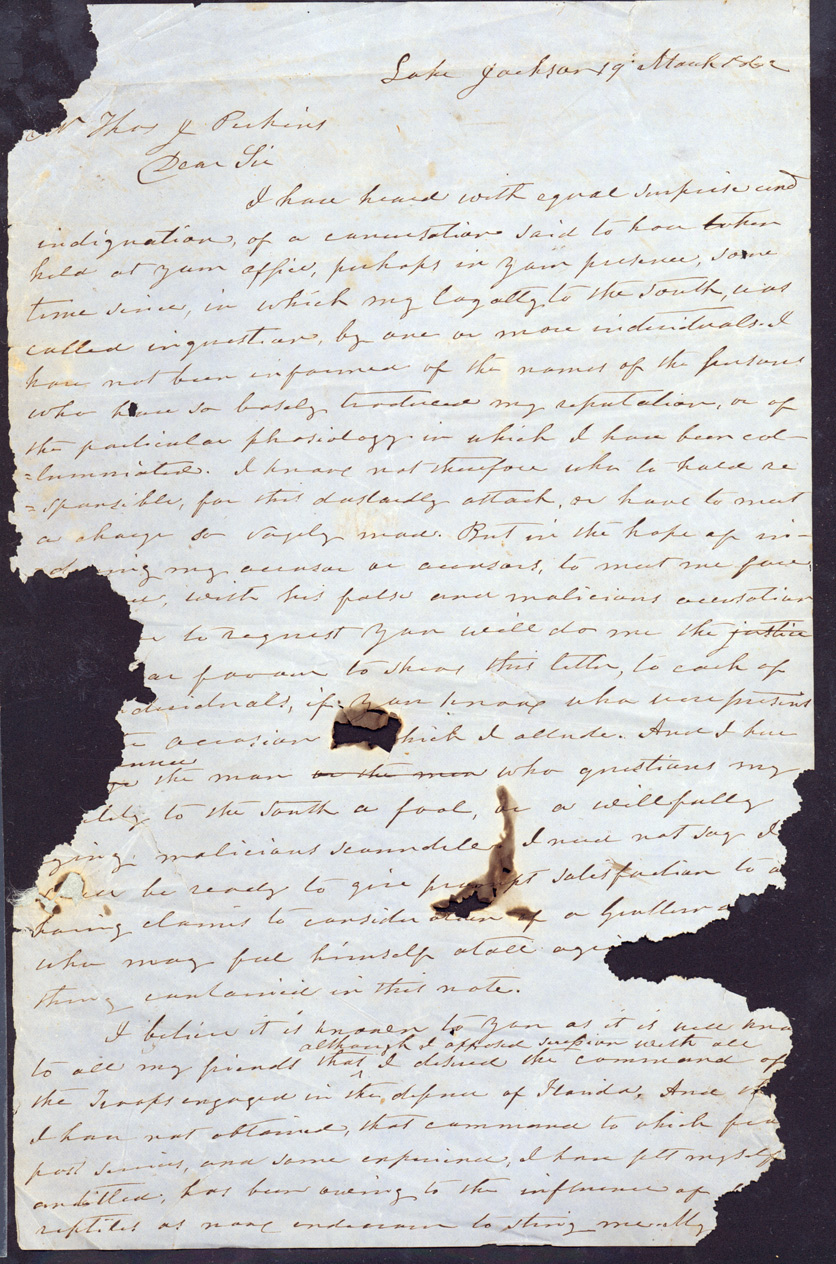 Lake Jackson 19 March 1862
Mr Thos J Perkins
Dear Sir
I have heard with equal surprise and
indignation, of a conversation said to have taken
held at your office, perhaps in your presence, some
time since, in which my loyalty to the South, was
called in question, by one or more individuals. I
have not been informed of the names of the persons
who have so basely traduced my reputation, or of
the particular phrasiology in which I have been col-
-lumniated. I know not therefore who to hold re
=sponsible, for this dastardly attack, or how to meet
a charge so vagely made. But in the hope of in-
ing my accuser or accusers, to meet me face
with his false and malicious accusation
to request you will do me the justice
or favour to show this letter, to each of
dividuals, if you know who were present
occasion hich I allude. And I
the man or the men who questions my
lity to the South a fool, or a willfully
ying malicious scoundrel I need not say I
be ready to give prompt satisfaction to a
having claims to consideration of a Gentlem
who may feel himself atall agi
thing contained in this note.
I believe it is known to you as it is well kno
although I opposed secession with all
to all my friends that I desired the command of
the Troops engaged in the defense of Florida, And
I have not obtained, that command to which
past services, and some experience, I have felt myself
entitled, has been owing to the influence of
reptiles as now endeavour to sting me